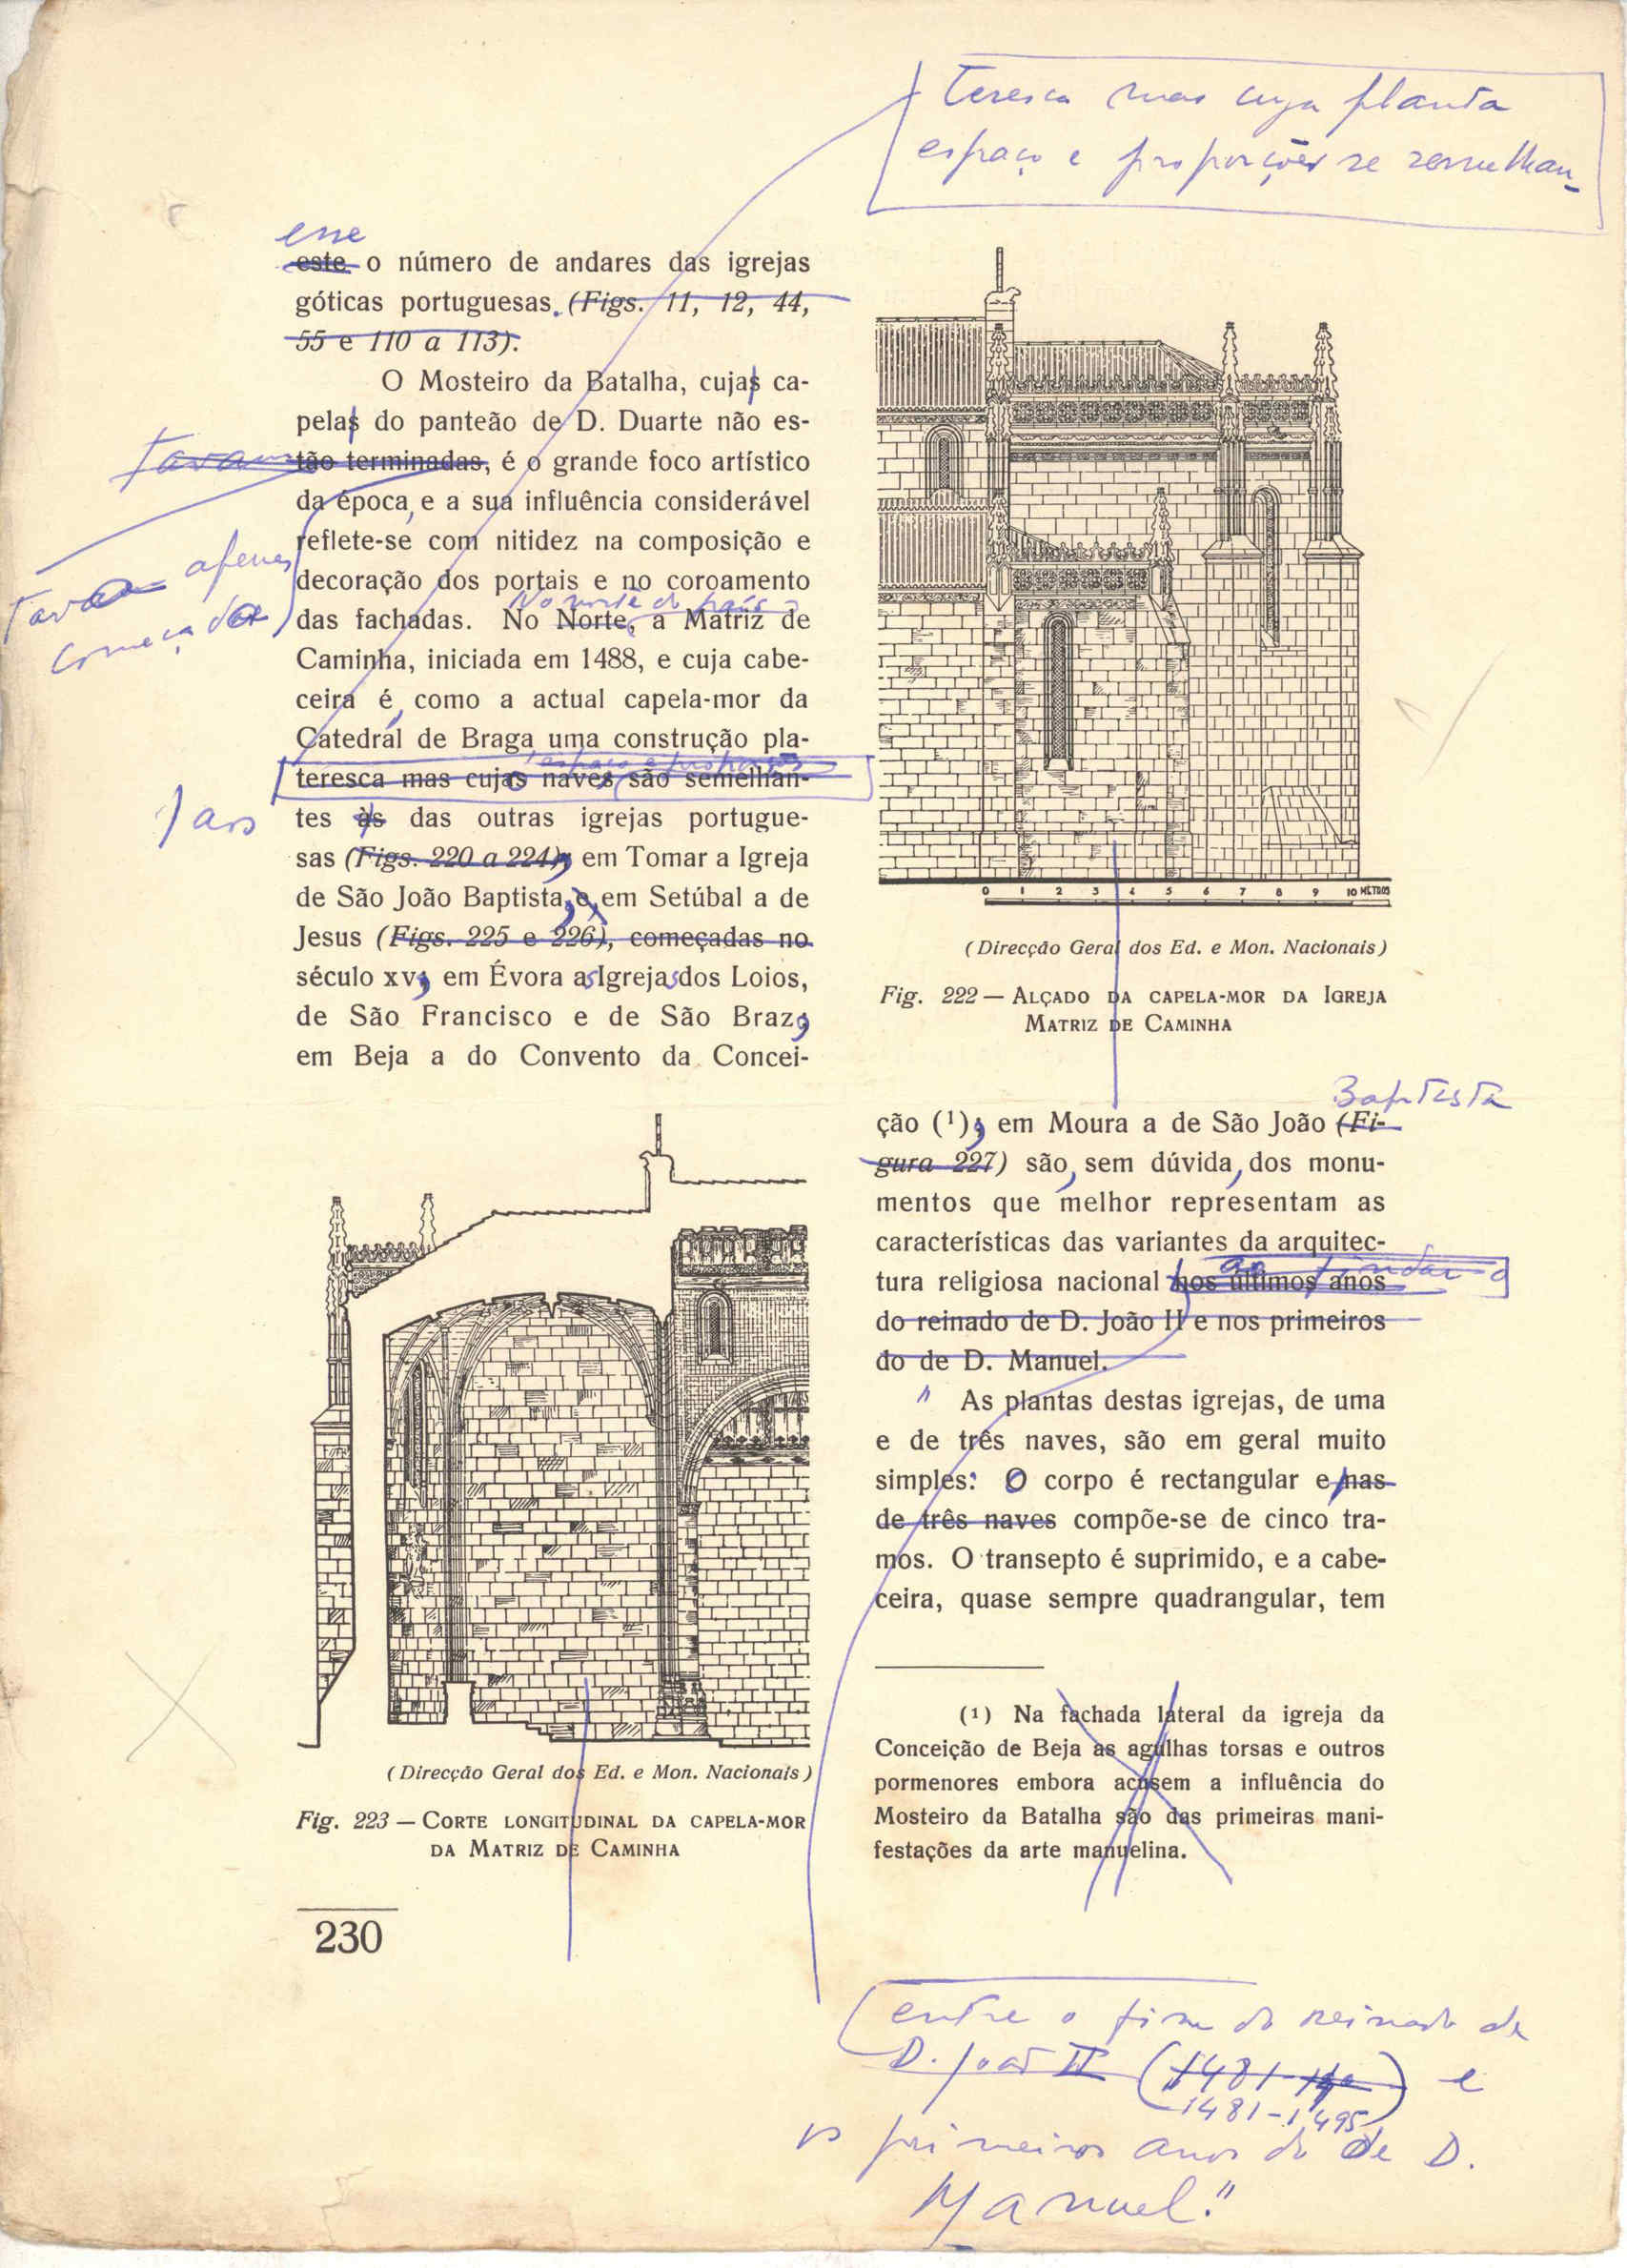 teresca mas cuja planta
espaço e proporções se semelhan-
esse
este o número de andares das igrejas
góticas portuguesas. (Figs. 11, 12, 44,
55 e 110 a 113).
O Mosteiro da Batalha, cujas ca-
pelas do panteão de D. Duarte não es-
tavam
tão terminadas, é o grande foco artístico
da época, e a sua influência considerável
reflete-se com nitidez na composição e
apenas
decoração dos portais e no coroamento
começada
No norte do país
das fachadas. No Norte, a Matriz de
Caminha, iniciada em 1488, e cuja cabe-
ceira é, como a actual capela-mor da
Catedral de Braga, uma construção pla-
espaço e proporções
teresca mas cujas naves são semelhan-
/ aos
tes às das outras igrejas portugue-
sas (Figs. 220 a 224), em Tomar a Igreja
de São João Baptista, e, em Setúbal a de
Jesus (Figs. 225 e 226), começadas no
século XV; em Évora as Igrejas dos Loios,
de São Francisco e de São Braz;
em Beja a do Convento da Concei-
(Direcção Geral dos Ed. e Mon. Nacionais)
Fig. 223 — CORTE LONGITUDINAL DA CAPELA-MOR
DA MATRIZ DE CAMINHA
230
0 1 2 3 4 5 6 7 8 9 10 METROS
(Direcção Geral dos Ed. e Mon. Nacionais)
Fig. 222 — ALÇADO DA CAPELA-MOR DA IGREJA
MATRIZ DE CAMINHA
Baptista
ção (¹); em Moura a de São João (Fi-
gura 227) são, sem dúvida, dos monu-
mentos que melhor representam as
características das variantes da arquitec-
tura religiosa nacional nos últimos anos
do reinado de D. João II e nos primeiros
do de D. Manuel.
" As plantas destas igrejas, de uma
e de três naves, são em geral muito
simples: O corpo é rectangular e nas
de três naves compõe-se de cinco tra-
mos. O transepto é suprimido, e a cabe-
ceira, quase sempre quadrangular, tem
(¹) Na fachada lateral da igreja da
Conceição de Beja as agulhas torsas e outros
pormenores embora acusem a influência do
Mosteiro da Batalha são das primeiras mani-
festações da arte manuelina.
entre o fim do reinado de
D. João II (1481- e
1481-1495)
os primeiros anos do de D.
Manuel."